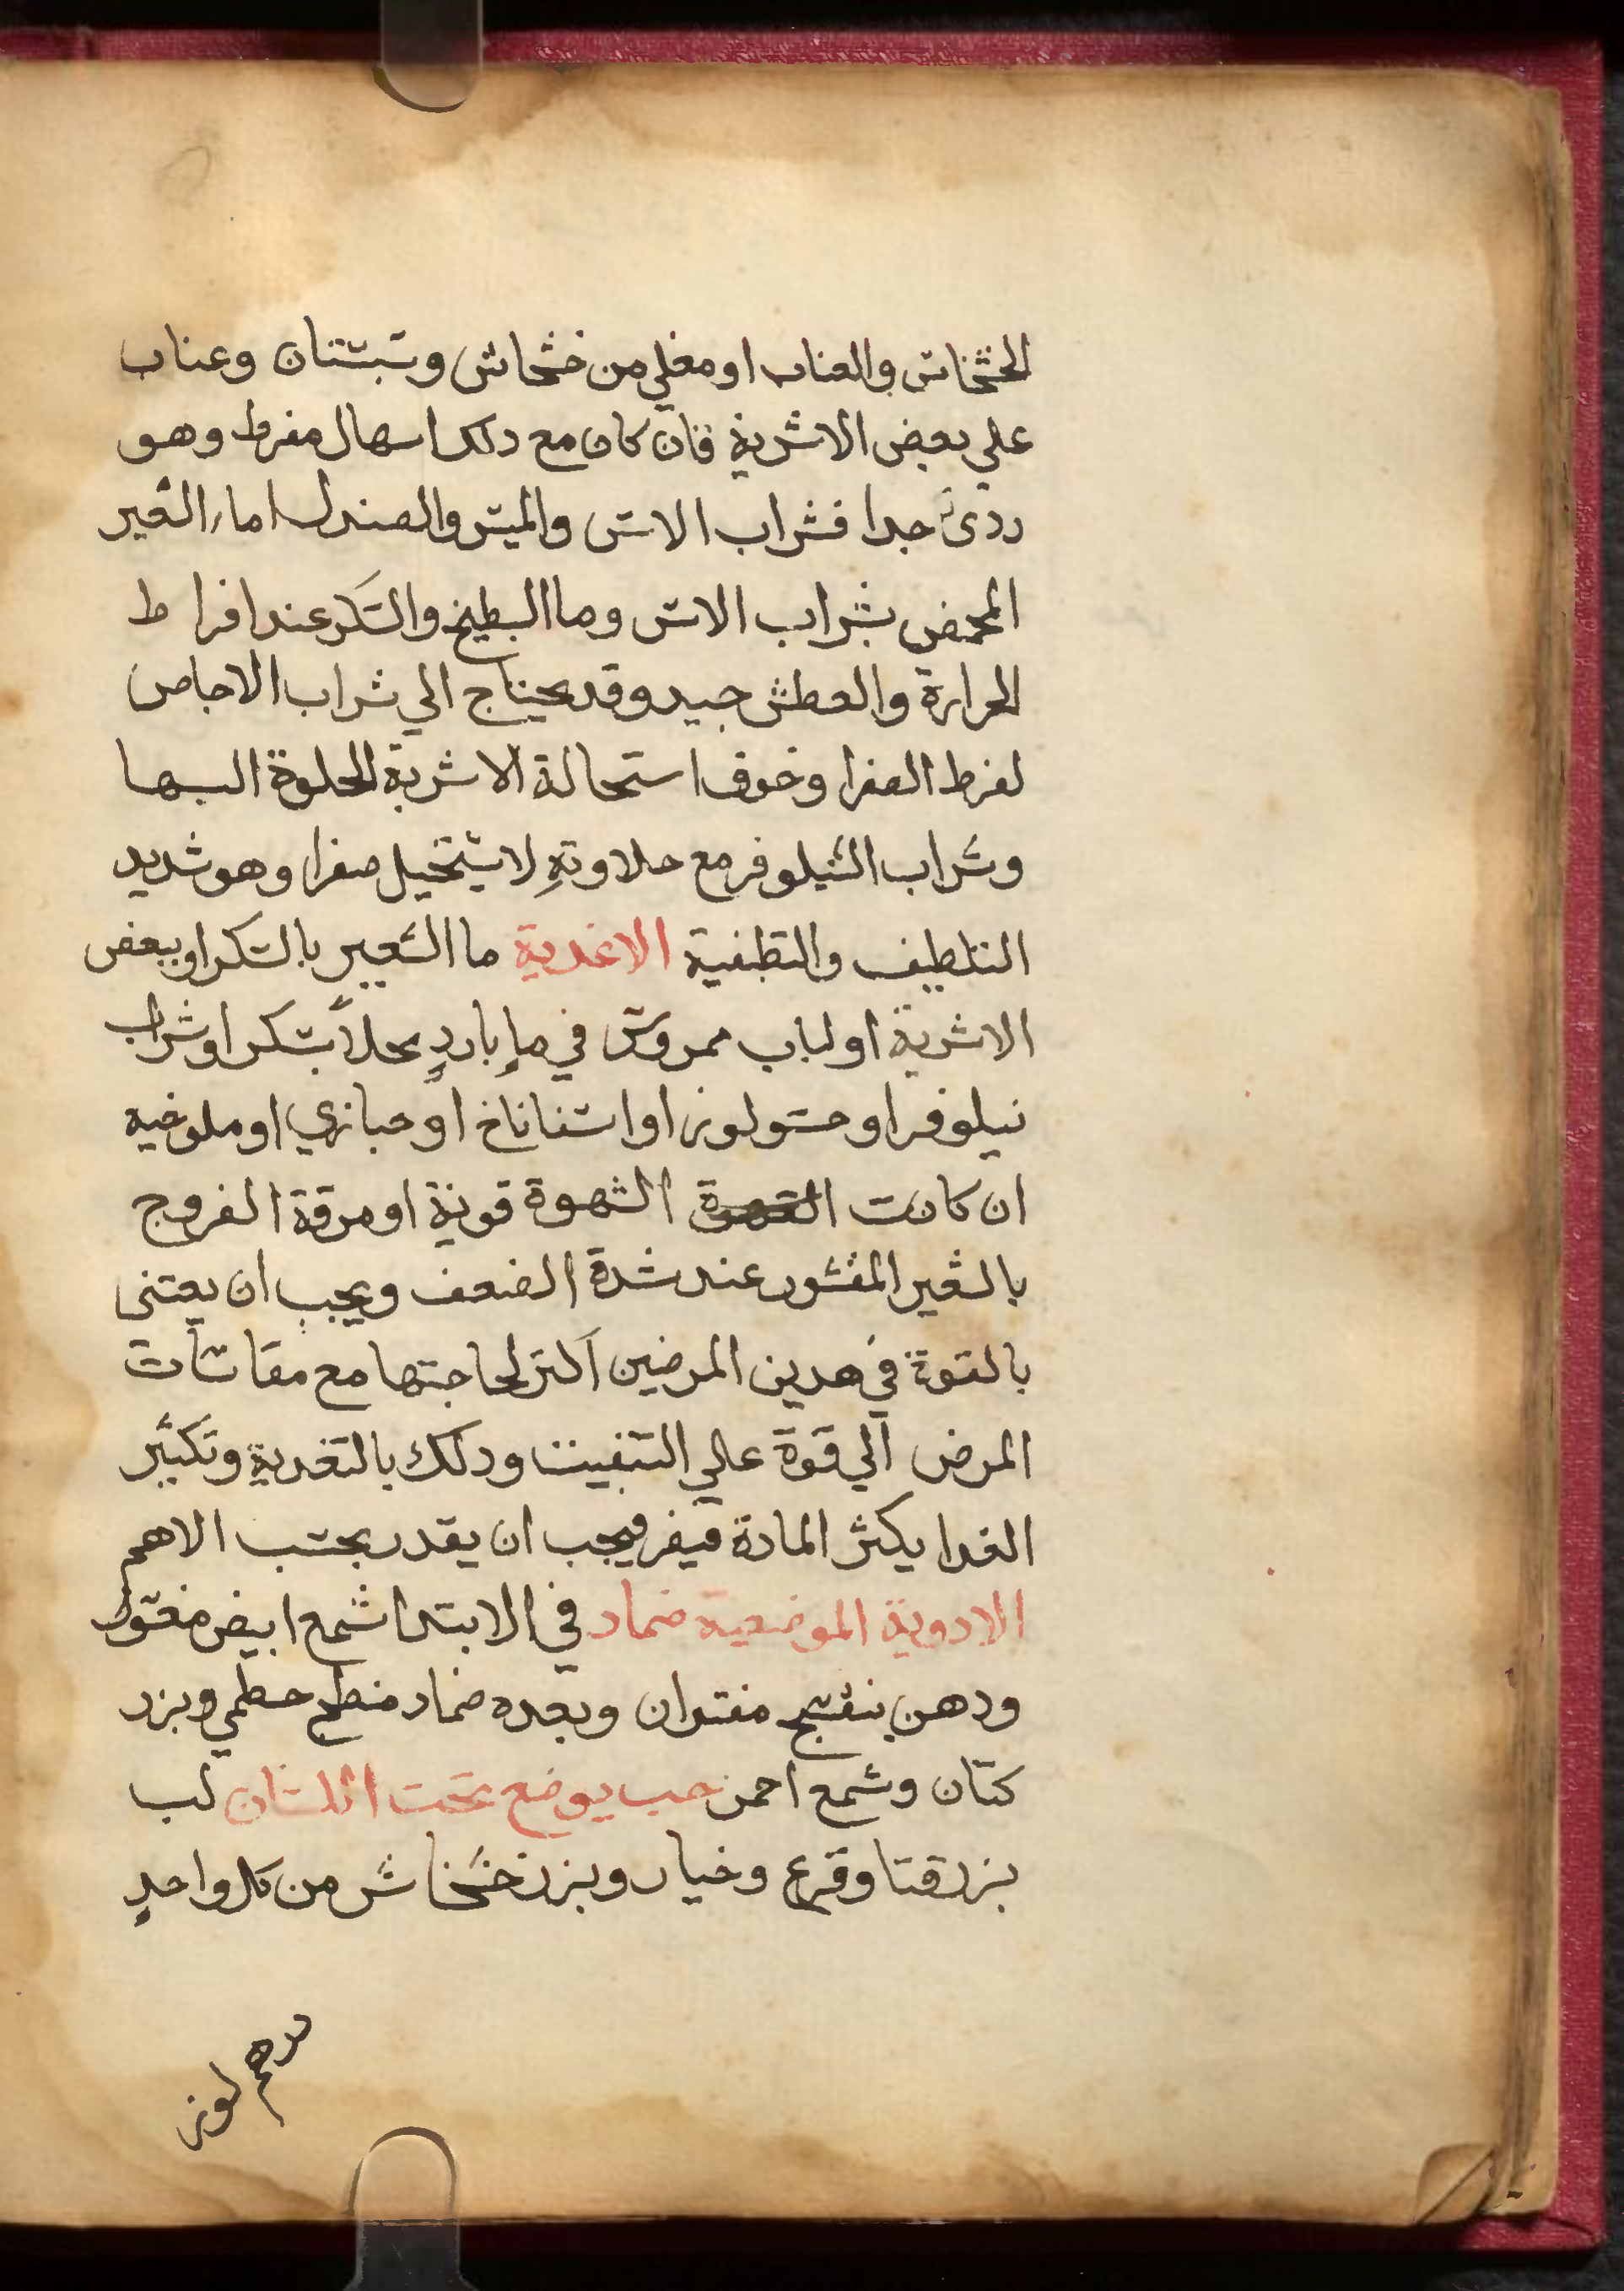 الخشخاش والعناب او مغلي من خشخاش وسبستان وعناب
علي بعض الاشربة فان كان مع دلك اسهال مفرط وهو
ردئ جدا فشراب الاس والميس والصندل اما الشعير
المحمض بشراب الاس وما البطيخ والسكر عند افراط
الحرارة والعطش جيد وقد يحتاج الي شراب الاجاص
لفرط الصفرا وخوف استحالة الاشربة الحلوة اليها
وشراب النيلوفر مع حلاوتهِ لا يستحيل صفرا وهو شديد
التلطيف والتطفية الاغدية ما الشعير بالسكر او ببعض
الاشربة او لباب ممروس في ماءٍ باردٍ محلاً بسكر او شراب
نيلوفر او حسو لوز او اسفاناخ او خبازي او ملوخيه
ان كانت الشهوة قوية او مرقة الفروج
بالشعير المقشور عند شدة الضعف ويجب ان يعتني
بالقوة في هدين المرضين اكثر لحاجتها مع مقاسات
المرض الي قوة علي التنفيث ودلك بالتغدية وتكثير
الغدا يكثر المادة فيضر فيجب ان يقدر بحسب الاهم
الادوية الموضعية ضماد في الابتدا شمع ابيض مغسول
ودهن بنفسج مفتران وبعده ضماد منضج خطمي وبزر
كتان وشمع احمر حب يوضع تحت اللسان لب
بزر قثا وقرع وخيار وبزر خشخاش من كل واحدٍ
درهم لوز